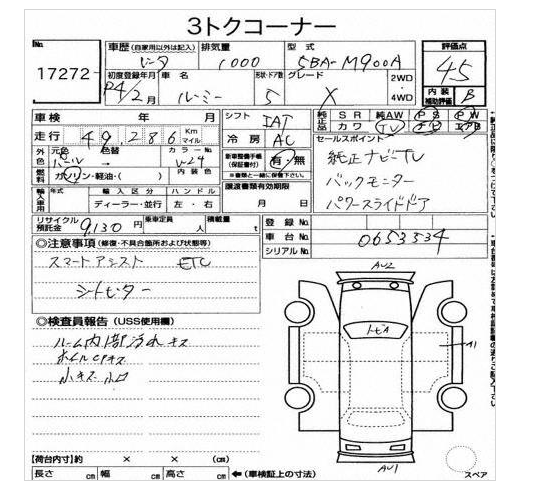 3トクコーナー
No.
17272
車歴 (自家用以外は記入)
排気量
1000
型式
5BA-M900A
評価点
4.5
初度登録年月
R4/2月
車名
ルーミー
形状・ドア数
5
グレード
X
2WD
4WD
内装
補助評価
B
車検 年 月
走行 49,286 Km マイル
シフト
IAT
冷房
AC
純正品
SR 純AW PS PW
カワ TV エアB
外色
元色 色替
カラーNo.
V-24
燃料
ガソリン・軽油・( )
内装色
新車整備手帳
(保証書付)
有・無
※書類と一緒に保管下さい
セールスポイント
純正ナビ-TV
バックモニター
パワースライドドア
輸入車用
年式
輸入区分
ハンドル
ディーラー・並行
左・右
譲渡書類有効期限
月 日
リサイクル預託金
9,130 円
乗車定員
人
積載量
t
登録No.
車台No.
0653534
シリアルNo.
◎注意事項 (修復・不具合箇所および状態等)
スマートアシスト ETC
シートヒーター
◎検査員報告 (USS使用欄)
ルーム内部汚れ キズ
ホイールCPキズ
小キズ 小凹
AU2
トビA
A1
AU1
スペア
【荷台内寸】約 × × (cm)
長さ cm 幅 cm 高さ cm ←(車検証上の寸法)